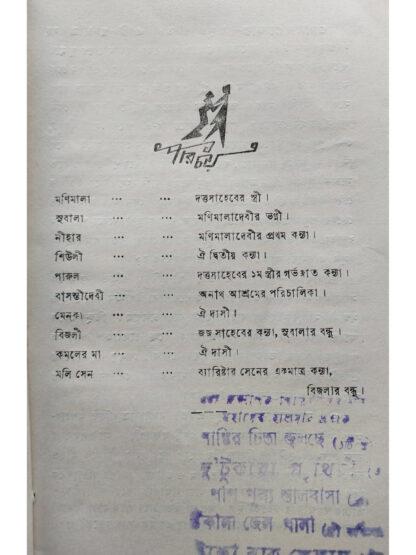 পরিচয়
মণিমালা ... ... দত্তসাহেবের স্ত্রী।
সুবালা ... ... মণিমালাদেবীর ভগ্নী।
নীহার ... ... মণিমালাদেবীর প্রথম কন্যা।
শিউলী ... ... ঐ দ্বিতীয় কন্যা।
পারুল ... ... দত্তসাহেবের ১ম স্ত্রীর গর্ভজাত কন্যা।
বাসন্তীদেবী ... ... অনাথ আশ্রমের পরিচালিকা।
মেনকা ... ... ঐ দাসী।
বিজলী ... ... জজ সাহেবের কন্যা, সুবালার বন্ধু।
কমলের মা ... ... ঐ দাসী।
মলি সেন ... ... ব্যারিষ্টার সেনের একমাত্র কন্যা,
বিজলার বন্ধু।
শান্তির চিতা জ্বলছে
দু'টুকরো পৃথিবী
পাপ পুণ্য ভালবাসা
টাকালা জেল থানা